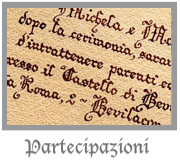 Michela e
dopo la cerimonia, sara
d'intrattenere parenti e
resso il Castello di Be
a Roma, 2 - Bevilac
Partecipazioni